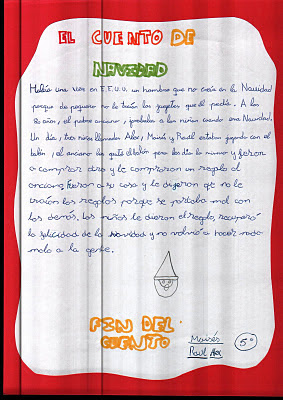 EL CUENTO DE
NAVIDAD
Había una vez en E.E.U.U. un hombre que no creía en la Navidad
porque de pequeño no le traían los juguetes que él pedía. A los
80 años, el pobre anciano, robaba a los niños cuando era Navidad.
Un día, tres niños llamados Alex, Moisés y Raúl estaban jugando con el
balón, el anciano les quitó el balón pero los días lo mismo y fueron
a comprar otro y le compraron un regalo al
anciano fueron a su casa y le dijeron que no le
traían los regalos porque se portaba mal con
los demás. Los niños le dieron el regalo, recuperó
la felicidad de la Navidad y no volvió a hacer nada
malo a la gente.
FIN DEL
CUENTO
Moisés
Raúl Alex
5º